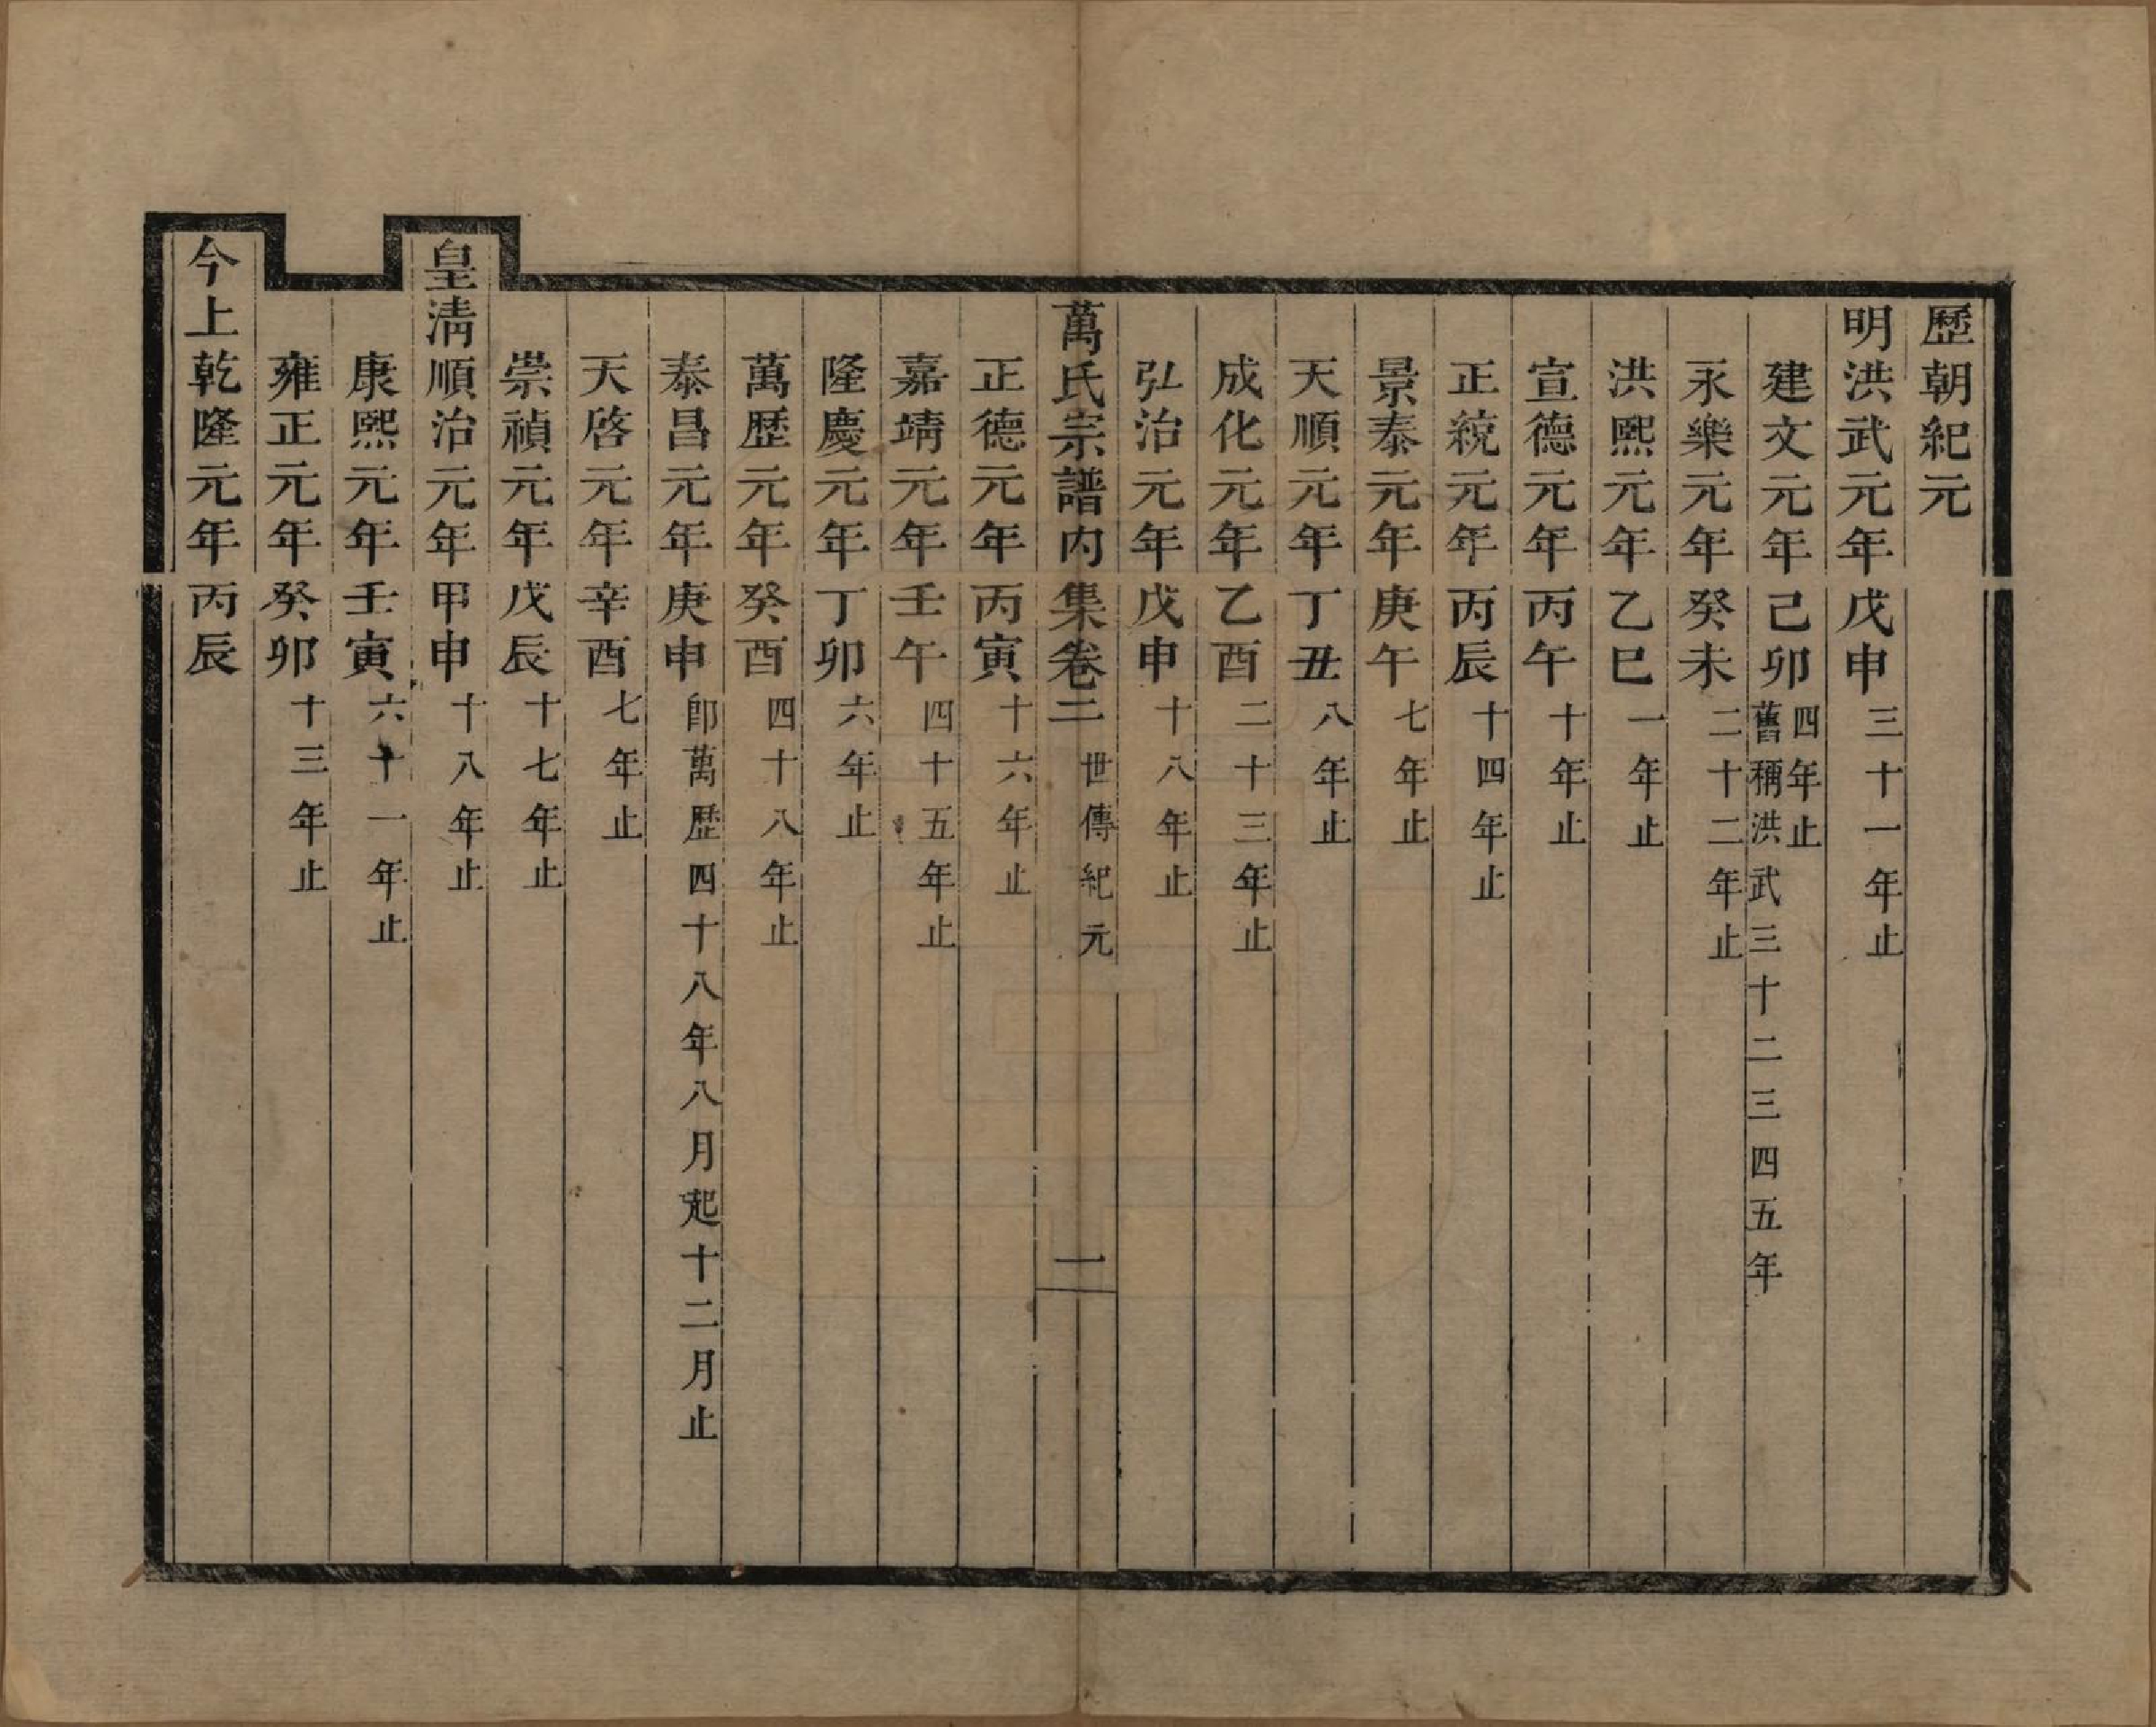 歷朝紀元
明洪武元年戊申三十一年止
建文元年己卯四年止舊稱洪武三十二三四五年
永樂元年癸未二十二年止
洪熙元年乙巳一年止
宣德元年丙午十年止
正統元年丙辰十四年止
景泰元年庚午七年止
天順元年丁丑八年止
成化元年乙酉二十三年止
弘治元年戊申十八年止
萬氏宗譜內集卷二 世傳紀元 一
正德元年丙寅十六年止
嘉靖元年壬午四十五年止
隆慶元年丁卯六年止
萬歷元年癸酉四十八年止
泰昌元年庚申卽萬歷四十八年八月起十二月止
天啓元年辛酉七年止
崇禎元年戊辰十七年止
皇清順治元年甲申十八年止
康熙元年壬寅六十一年止
雍正元年癸卯十三年止
今上乾隆元年丙辰